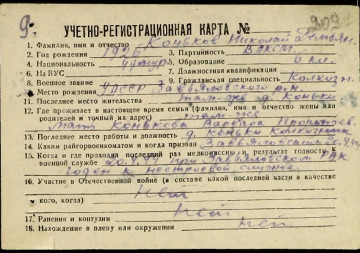 9.
УЧЕТНО-РЕГИСТРАЦИОННАЯ КАРТА №
1. Фамилия, имя и отчество Коньков Николай
2. Год рождения 1926 3. Партийность ВЛКСМ
4. Национальность удмурт 5. Образование 6 кл.
6. № ВУС 7. Должностная квалификация
8. Военное звание 9. Гражданская специальность Колхозн.
10. Место рождения УАССР Завьяловского р.
11. Последнее место жительства там-же д. Коньки
12. Где проживает в настоящее время семья (фамилия, имя и отчество жены или
родителей и точный их адрес) там же
Мать Конькова
13. Последнее место работы и должность д. Коньки Колхозник
14. Каким райгорвоенкоматом и когда призван Завьяловским
15. Когда и где проходил последний раз медкомиссию и результат годности к
военной службе Завьяловском РВК
годен к нестроевой службе.
16. Участие в Отечественной войне (в составе какой последней части и качестве
кого, когда) Нет
17. Ранения и контузии нет
18. Нахождение в плену или окружении нет.